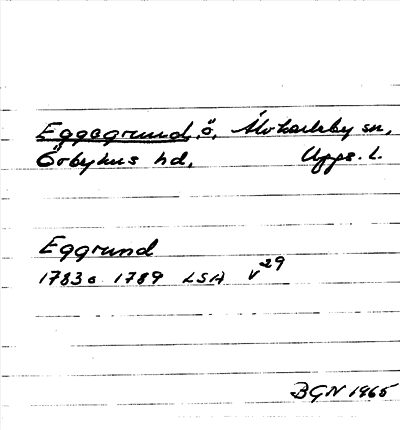 Eggegrund, ö, Älvkarleby sn,
Örbyhus hd, Upps. l.
Eggrund
1783 o 1789 LSA V 29
BGN 1965